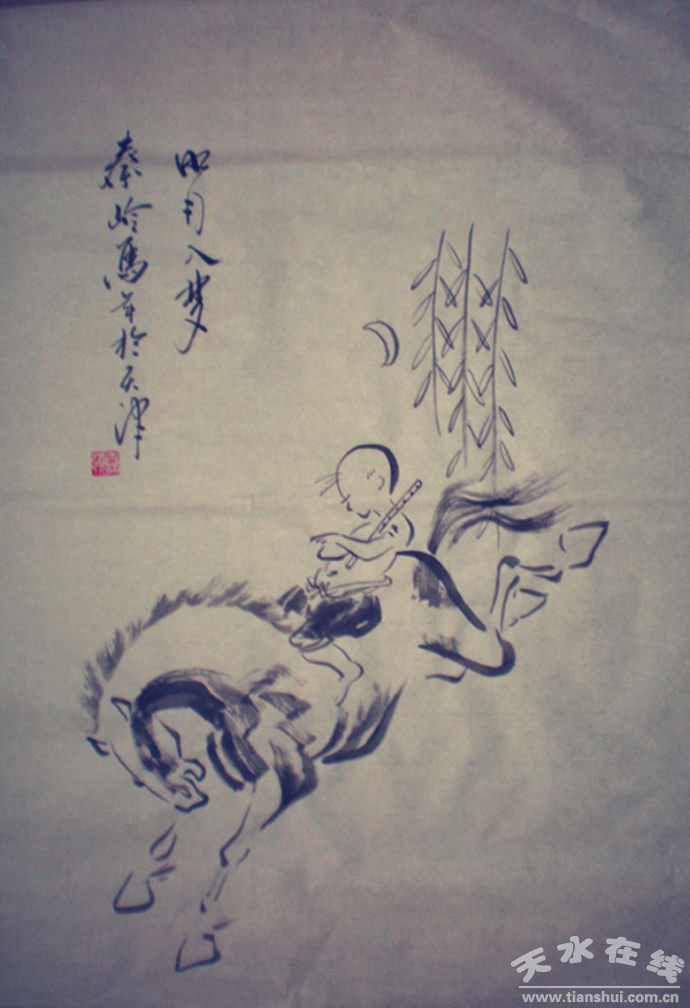 明月入梦
秦岭马年于天津
天水在线
www.tianshui.com.cn